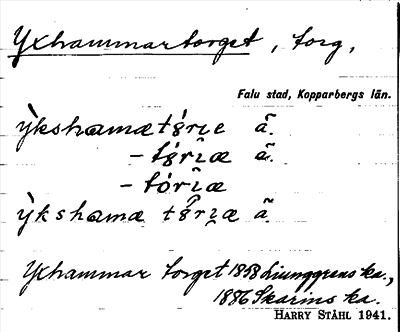 Yxhammartorget, torg,
Falu stad, Kopparbergs län.
ỳkshamætǿrıe ã.
-tǿrîæ ã.
-tórîæ
ỳkshamæ tørîæ ã
Yxhammar torget 1858 Ljunggrens ka.,
1886 Skarins ka.
HARRY STÅHL 1941.